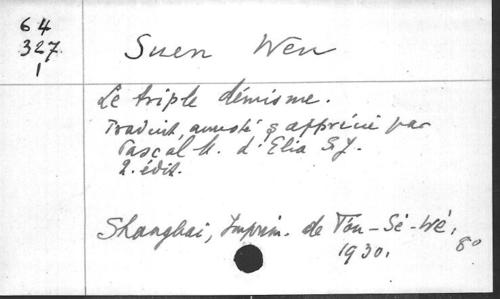 64
327.
1
Suen Wen
Le triple démisme.
Traduit, annoté & apprécié par
Pascal M. d'Elia S.J.
2. édit.
Shanghai, Imprim. de T'ou-Sè-Wè,
1930. 8°